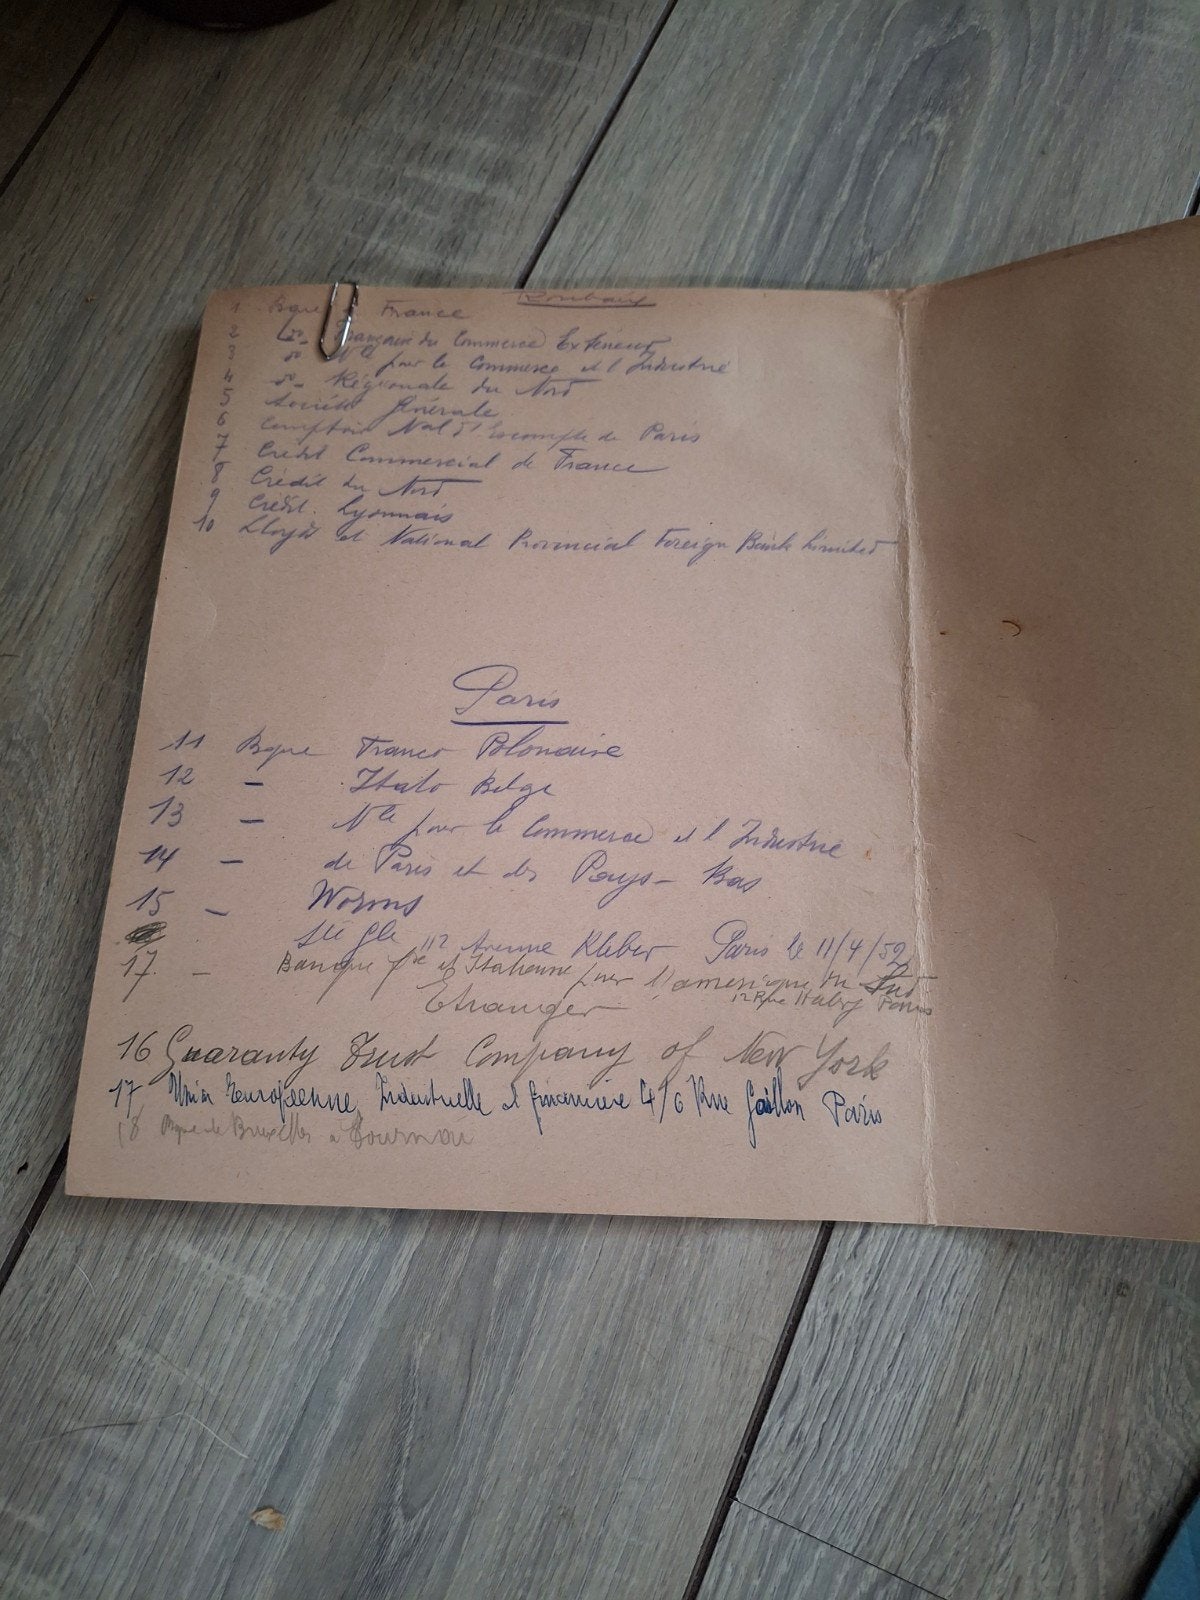 Roubaix
1 Bque France
2 do Française du Commerce Extérieur
3 do Nle pour le Commerce et l'Industrie
4 do Régionale du Nord
5 Société Générale
6 Comptoir Nal d'Escompte de Paris
7 Crédit Commercial de France
8 Crédit du Nord
9 Crédit Lyonnais
10 Lloyds et National Provincial Foreign Bank Limited
Paris
11 Bque Franco Polonaise
12 – Italo Belge
13 – Nle pour le Commerce et l'Industrie
14 – de Paris et des Pays-Bas
15 – Worms
Sté Gle 112 Avenue Kleber Paris le 11/4/52
17 – Banque Fse et Italienne pour l'amerique du Sud
12 Rue Halévy Paris
Etranger
16 Guaranty Trust Company of New York
17 Union Européenne Industrielle et financière 4/6 Rue Gaillon Paris
18 Bque de Bruxelles à Tournai